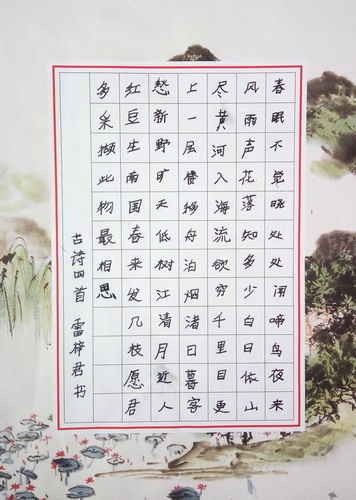 春眠不觉晓处处闻啼鸟夜来
风雨声花落知多少白日依山
尽黄河入海流欲穷千里目更
上一层楼移舟泊烟渚日暮客
愁新野旷天低树江清月近人
红豆生南国春来发几枝愿君
多采撷此物最相思
古诗四首 雷梓君书